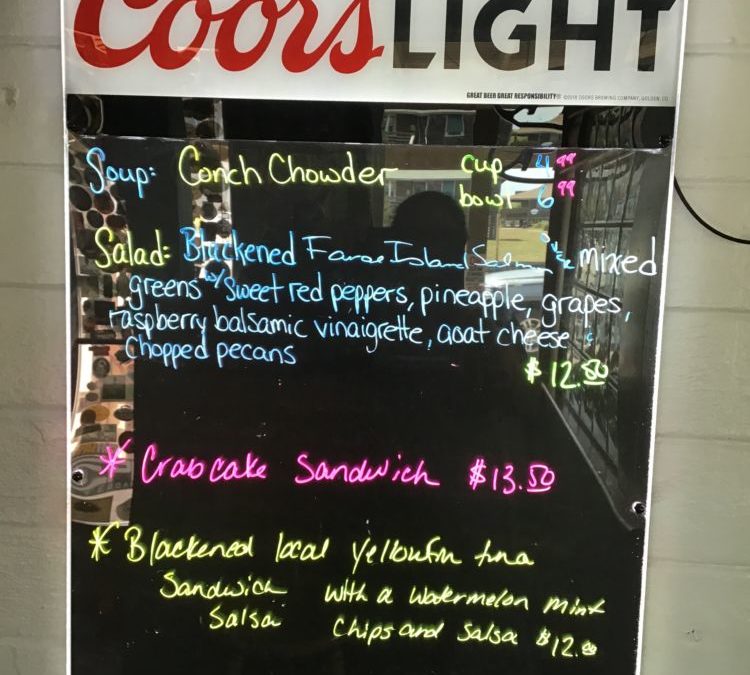 Coors LIGHT
GREAT BEER GREAT RESPONSIBILITY® ©2018 COORS BREWING COMPANY, GOLDEN, CO
Soup: Conch Chowder cup 4.99
bowl 6.99
Salad: Blackened Faroe Island Salmon over mixed
greens w/ sweet red peppers, pineapple, grapes,
raspberry balsamic vinaigrette, goat cheese &
chopped pecans
$12.50
* Crabcake Sandwich $13.50
* Blackened local yellowfin tuna
Sandwich with a watermelon mint
Salsa chips and salsa $12.00